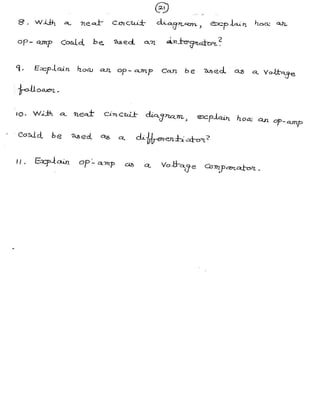 (21)
8. With a neat circuit diagram, explain how an
op-amp could be used an integrator?
9. Explain how an op-amp can be used as a voltage
follower.
10. With a neat circuit diagram, explain how an op-amp
could be used as a differentiator?
11. Explain op-amp as a voltage comparator.